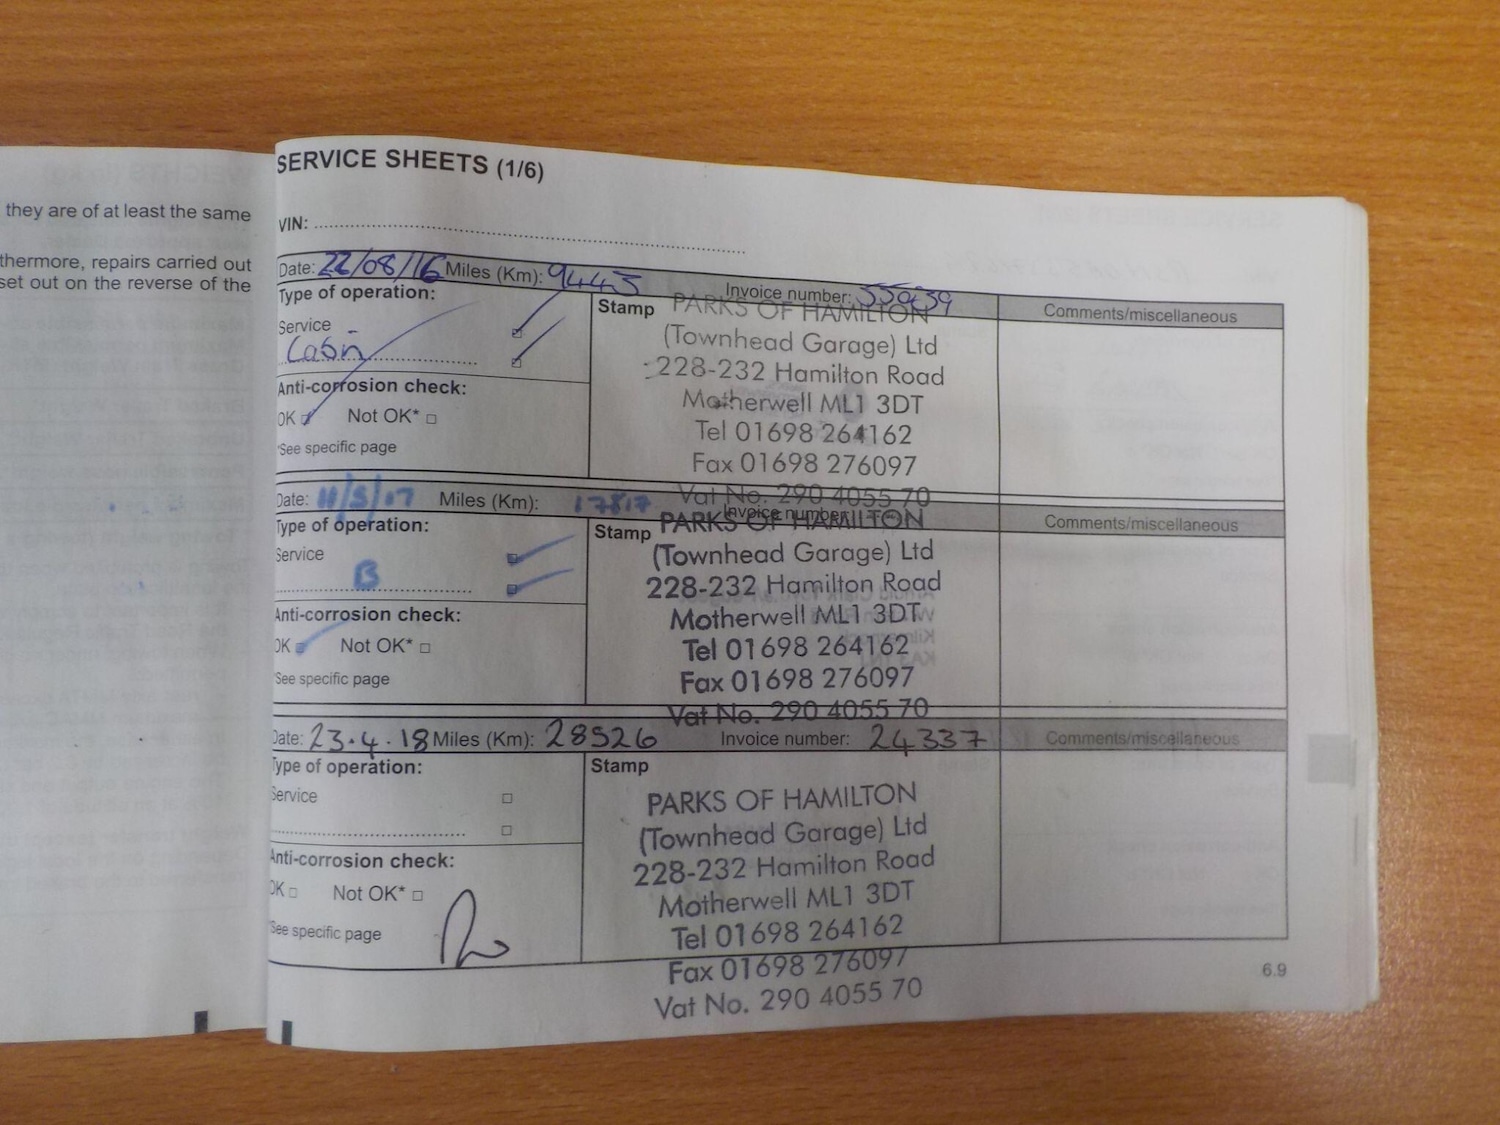 they are of at least the same
thermore, repairs carried out
set out on the reverse of the
SERVICE SHEETS (1/6)
VIN:
Date: 22/08/16 Miles (Km): 9443 Invoice number:
Type of operation:
Stamp
Comments/miscellaneous
Service
Cabin
Anti-corrosion check:
OK Not OK*
*See specific page
PARKS OF HAMILTON
(Townhead Garage) Ltd
228-232 Hamilton Road
Motherwell ML1 3DT
Tel 01698 264162
Fax 01698 276097
Vat No. 290 4055 70
Date: 11/5/17 Miles (Km): 17817 Invoice number:
Type of operation:
Stamp
Comments/miscellaneous
Service
B
Anti-corrosion check:
OK Not OK*
*See specific page
PARKS OF HAMILTON
(Townhead Garage) Ltd
228-232 Hamilton Road
Motherwell ML1 3DT
Tel 01698 264162
Fax 01698 276097
Vat No. 290 4055 70
Date: 23.4.18 Miles (Km): 28526 Invoice number: 24337
Type of operation:
Stamp
Comments/miscellaneous
Service
Anti-corrosion check:
OK Not OK*
*See specific page
PARKS OF HAMILTON
(Townhead Garage) Ltd
228-232 Hamilton Road
Motherwell ML1 3DT
Tel 01698 264162
Fax 01698 276097
Vat No. 290 4055 70
6.9